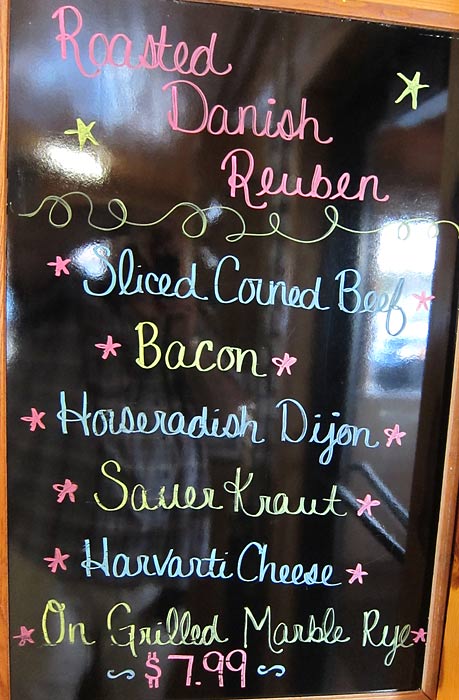 Roasted
Danish
Reuben
Sliced Corned Beef
Bacon
Horseradish Dijon
Sauer Kraut
Harvarti Cheese
On Grilled Marble Rye
$7.99